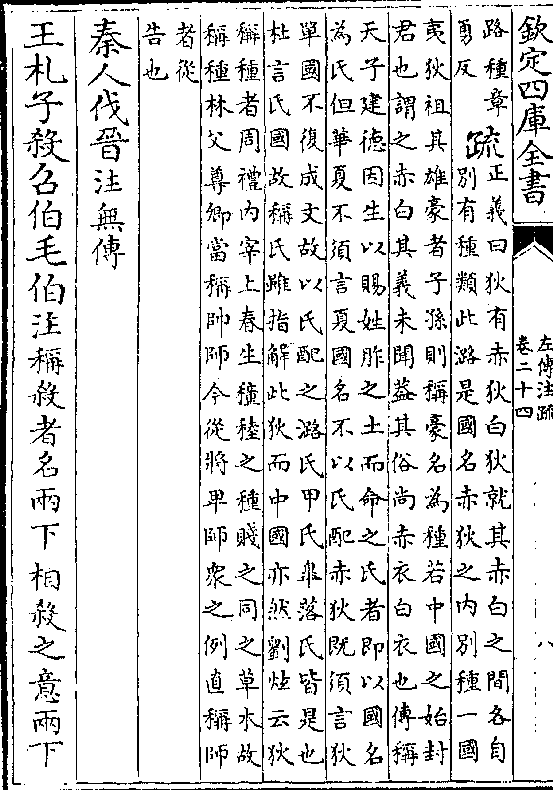 欽定四庫全書
左傳注疏
卷二十四
八
路種章
勇反
疏
正義曰狄有赤狄白狄就其赤白之間各自
別有種類此潞是國名赤狄之内別種一國
夷狄祖其雄豪者子孫則稱豪名為種若中國之始封
君也謂之赤白其義未聞蓋其俗尚赤衣白衣也傳稱
天子建德因生以賜姓胙之土而命之氏者即以國名
為氏但華夏不須言夏國名不以氏配赤狄既須言狄
單國不復成文故以氏配之潞氏甲氏臯落氏皆是也
杜言氏國故稱氏雖指解此狄而中國亦然劉炫云狄
稱種者周禮内宰上春生穜稑之種賤之同之草木故
稱種林父尊卿當稱帥師今從將卑師衆之例直稱師
者從
告也
秦人伐晉注無傳
王札子殺召伯毛伯注稱殺者名兩下相殺之意兩下